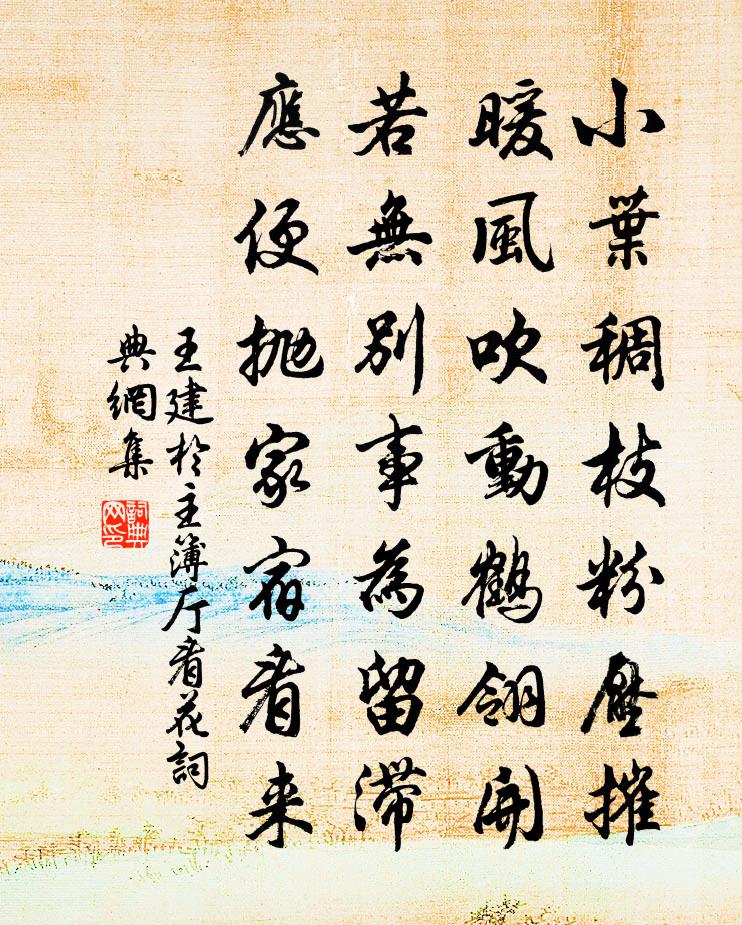 小葉稠枝粉壓摧
暖風吹動鶴翎開
若無別事為留滯
應便拋家宿看来
王建於主簿厅看花詞
典網集
詞典網印